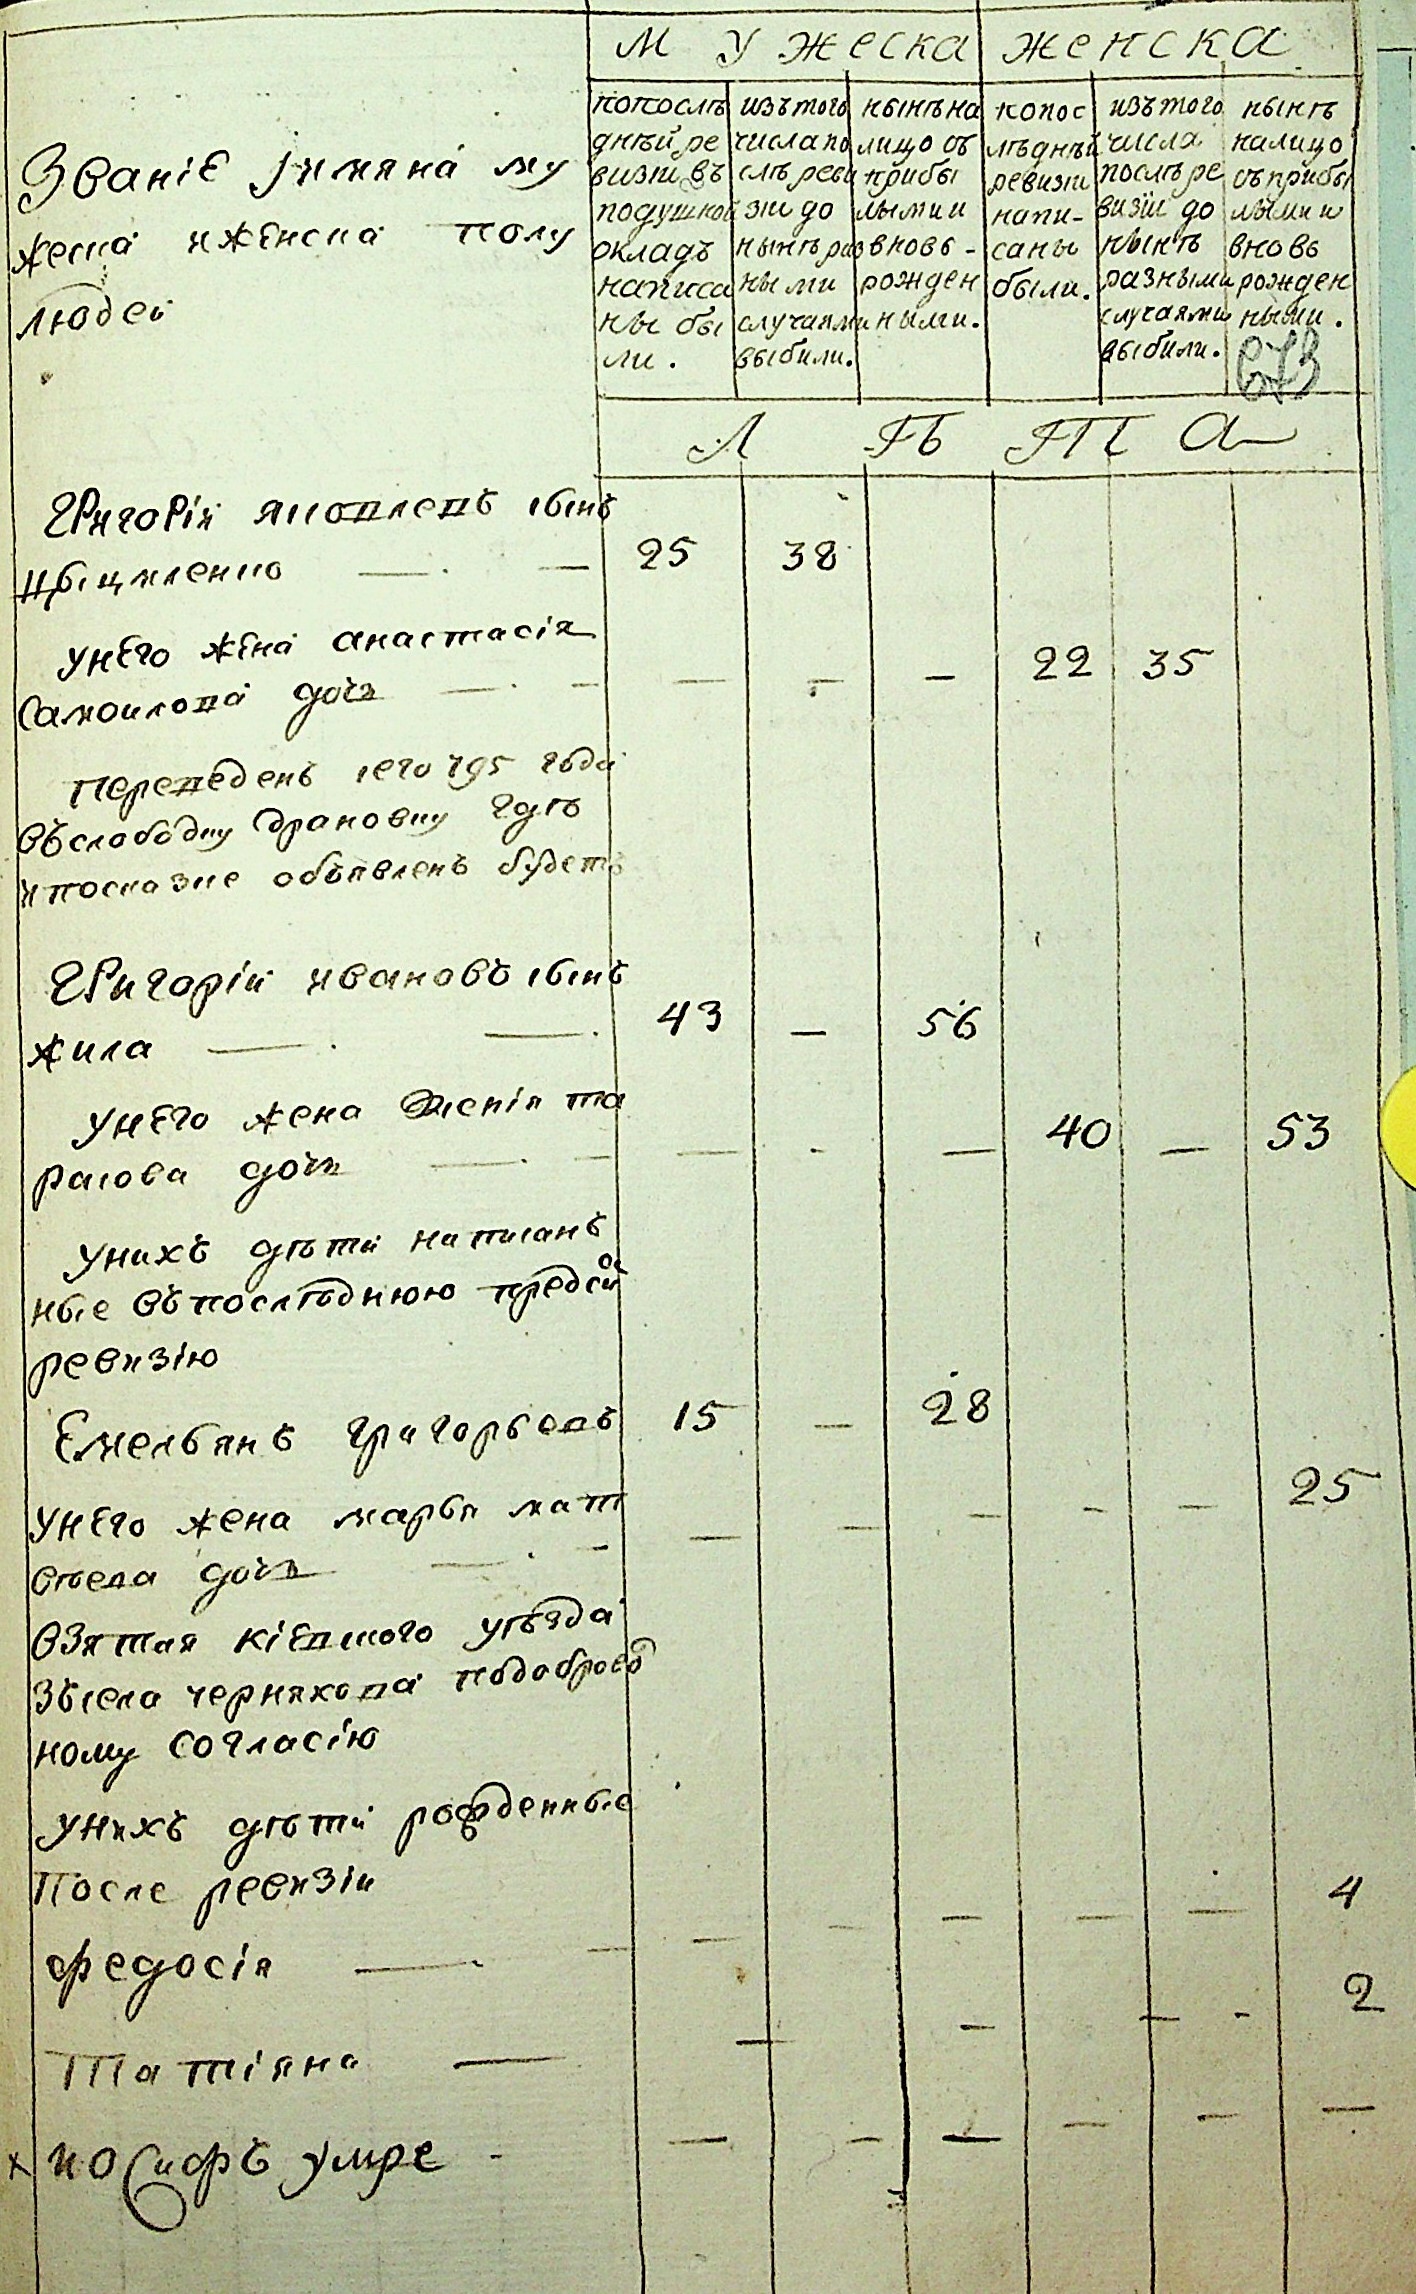 Мужеска женска
Званіе и имяна му
жеска и женска полу
людей
попослѣ
днѣй ре
визіи въ
подушной
окладъ
написа
ны бы
ли.
изъ того
числа по
слѣ реви
зіи до
нынѣ раз
ными
случаями
выбили.
нынѣ на
лицо съ
прибы
лыми и
вновь-
рожден
ными.
попос
лѣднѣй
ревизіи
напи-
саны
были.
изъ того
числа
послѣ ре
визіи до
нынѣ
разными
случаями
выбили.
нынѣ
налицо
съ прибы
лыми и
вновь
рожден
ными.
673
Лѣта
Григорій яковлевъ сынъ
— — 25 38
унего жена анастасія
самоилова дочь — — — — — 22 35
переведенъ сего 795 года
въ слободку где
и по сказке объявленъ будетъ
Григорій ивановъ сынъ
жила — — 43 — 56
унего жена та
расова дочь — — — — — 40 — 53
унихъ дѣти написанъ
ные въ последнюю пред сей
ревизію
Емельянъ григорьевъ 15 — 28
унего жена марья мат
вѣева дочь — — — — — — — 25
взятая кіевского уѣзда
зъ села черняхова подоброво
ному согласію
унихъ дѣти рожденные
после ревизіи
федосія — — — — — — — 4
Татіяна — — — — - 2
х иосифъ умре - — — — — — —